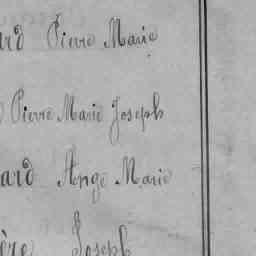 ard Pierre Marie
Pierre Marie Joseph
ard Ange Marie
ère Joseph